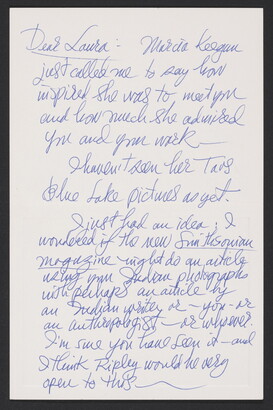 Dear Laura: Marcia Keegan
just called me to say how
inspired she was to meet you
and how much she admired
you and your work —
I haven't seen her Taos
Blue Lake pictures as yet.
I just had an idea: I
wondered if the new Smithsonian
magazine might do an article
using your Indian photographs
with perhaps an article by
an Indian writer or – you – or
an anthropologist – or whoever.
I'm sure you have seen it – and
I think Ripley would be very
open to this —